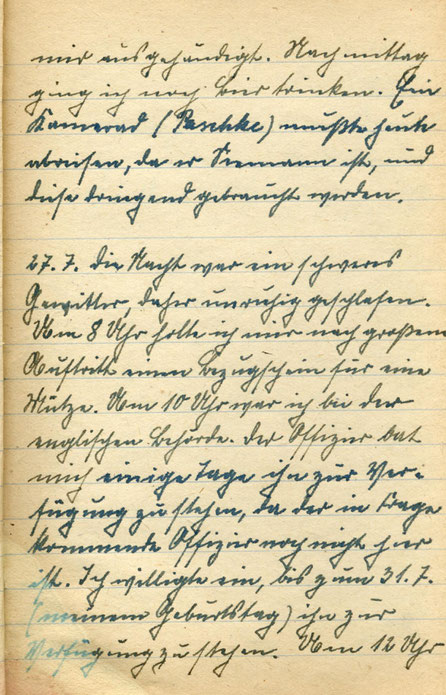 mir ausgehändigt. Nachmittag
ging ich noch Bier trinken. Ein
Kamerad (Paschke) mußte heute
abreisen, da er Seemann ist, und
diese dringend gebraucht werden.
27.7. Die Nacht war ein schweres
Gewitter, daher unruhig geschlafen.
Um 8 Uhr holte ich mir nach großem
Auftritt einen Bezugschein für eine
Mütze. Um 10 Uhr war ich bei der
englischen Behörde. Der Offizier bat
mich einige Tage ihn zur Ver-
fügung zu stehen, da der in Frage
kommende Offizier noch nicht hier
ist. Ich willigte ein, bis zum 31.7.
(meinem Geburtstag) ihn zur
Verfügung zu stehen. Um 12 Uhr